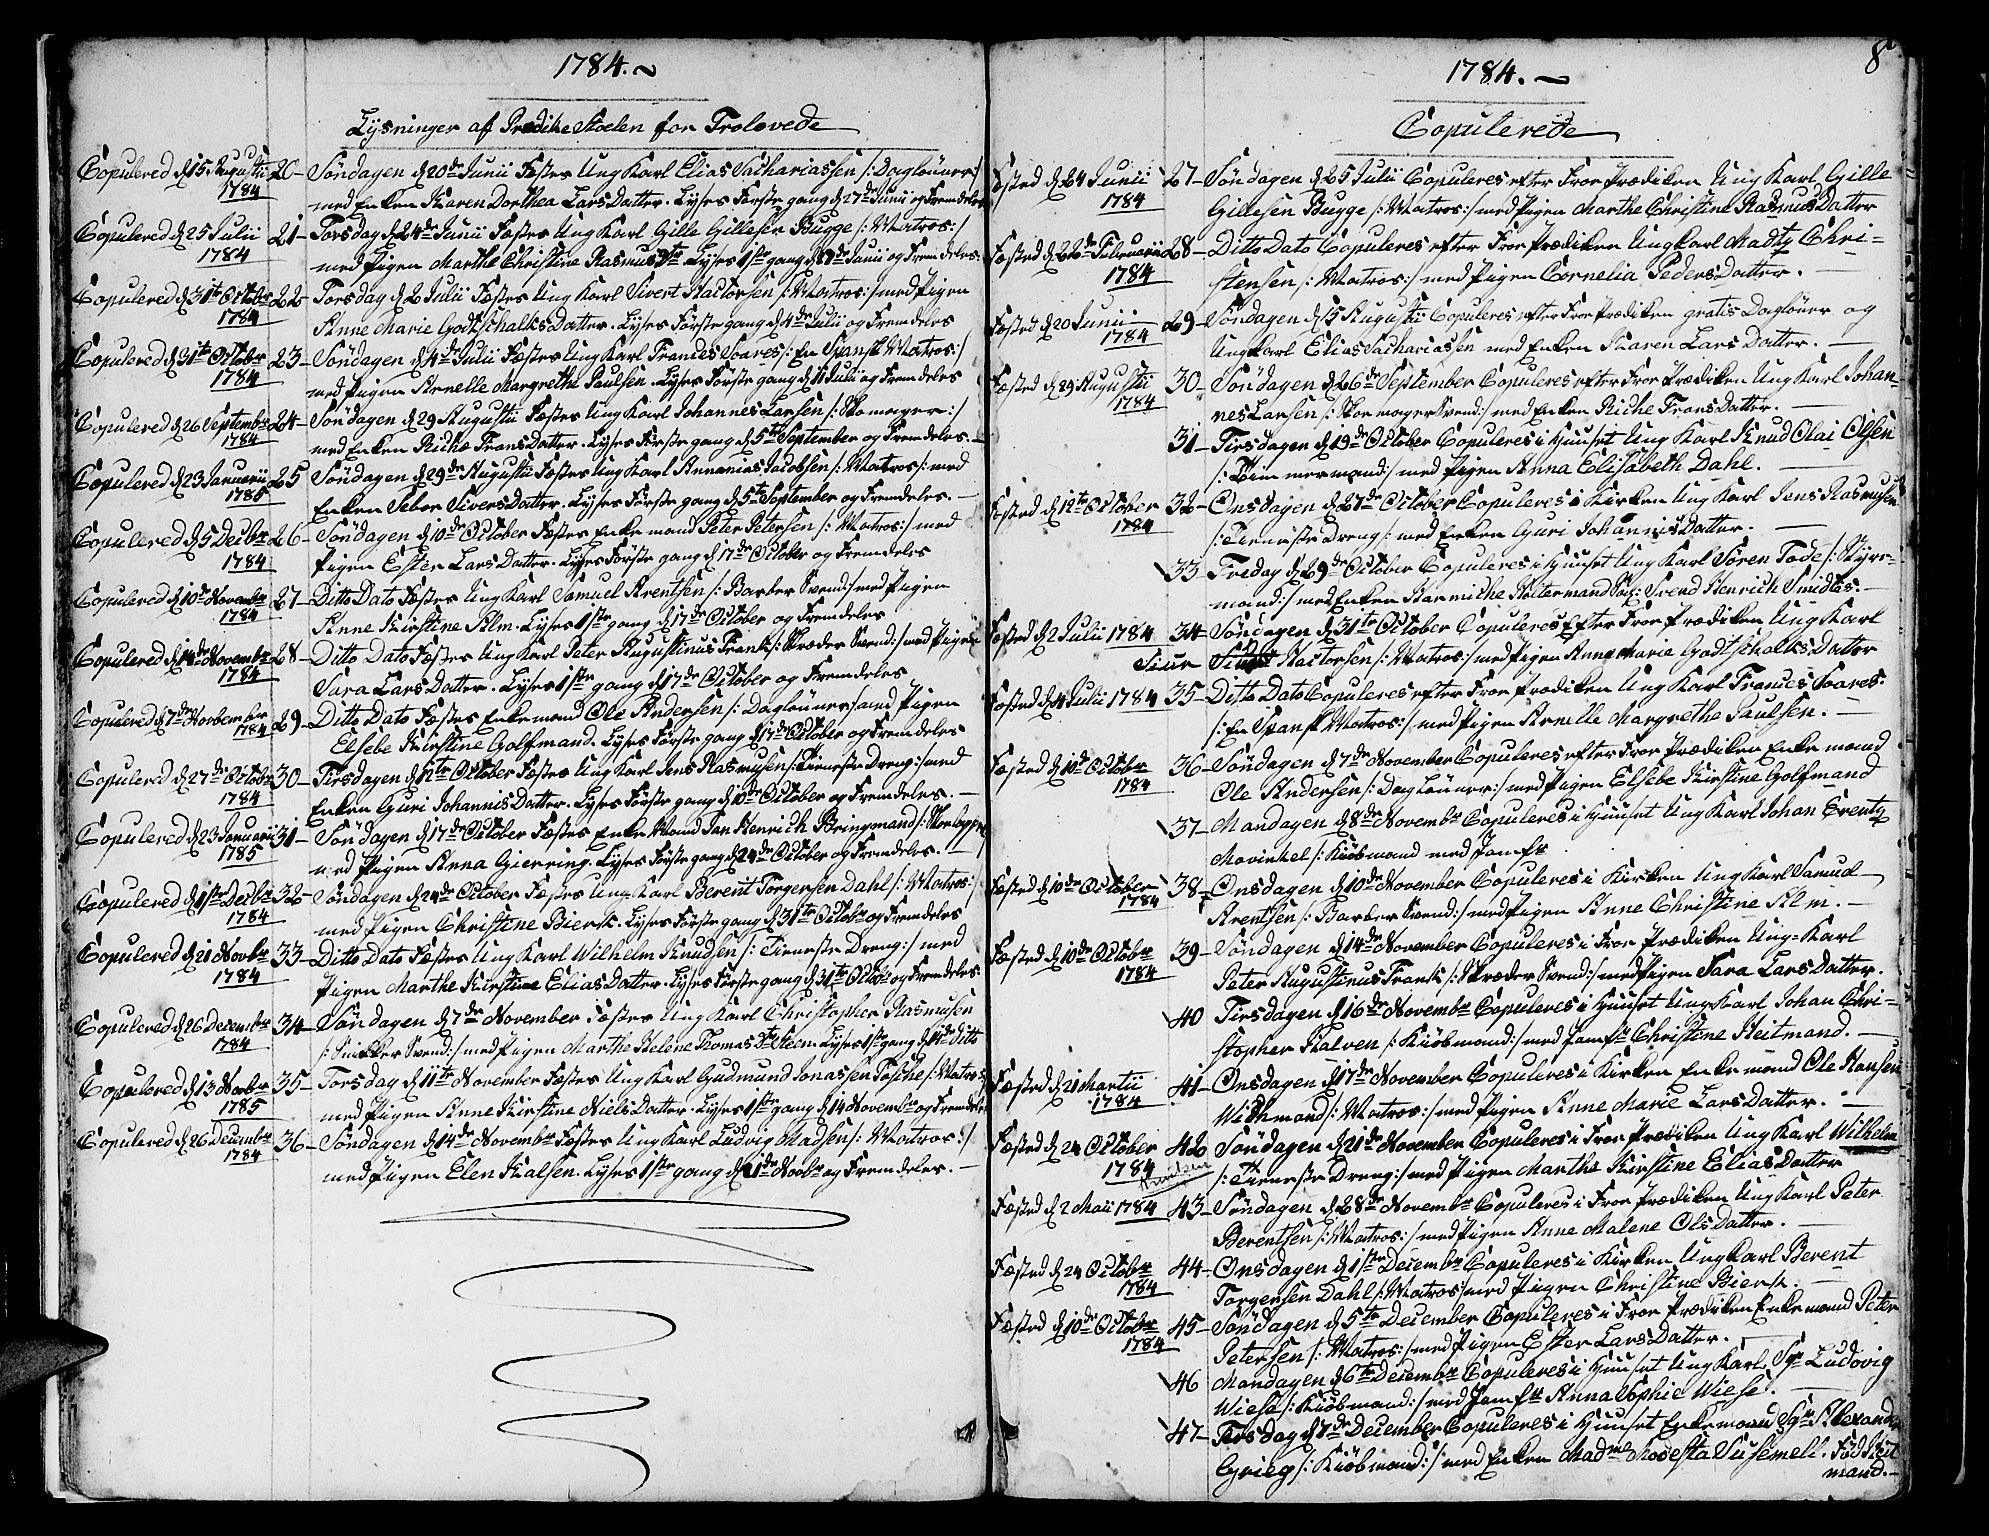 1784.
Lysninger af Prædike Stoelen for Trolovede
Copulered d. 15 Augustii 1784 20- Søndagen d. 20de Junii Fæstes Ung Karl Elias Sachariassen /: Daglønner :/
med Enken Karen Dorthea Lars Datter. Lyses Første gang d. 27de Junii og Fremdeles
Copulered d. 25 Julii 1784 21- Torsdag d. 24de Junii Fæstes Ung Karl Gille Gillesen Bugge /: Matros :/
med Pigen Marthe Christine Rasmus Dtr Lyses 1ste gang d. Junii og Fremdeles.
Copulered d. 31te Octobr 1784 22- Torsdag d. 2 Julii Fæstes Ung Karl Sivert Hactorsen /: Matros :/ med Pigen
Anne Marie Godtschalks Datter. Lyses Første gang d. 4de Julii og Fremdeles
Copulered d. 31te Octobr 1784 23- Søndagen d. 4de Julii Fæstes Ung Karl Frances Soares /: En Spansk Matros :/
med Pigen Arnelle Margrethe Paulsen. Lyses Første gang d. 11 Julii og Fremdeles
Copulered d. 26 Septembr 1784 24- Søndagen d. 29 Augustii Fæstes Ung Karl Johannes Larsen /: Skomager :/
med Enken Riche Frans Datter. Lyses Første gang d. 5te September og Fremdeles.
Copulered d. 23 Januarii 1785 25 Søndagen d. 29de Augustii Fæstes Ung Karl Annanias Jacobsen /: Matros :/ med
Enken Sebor Sivers Datter. Lyses Første gang d. 5te September og Fremdeles.
Copulered d. 5 Decbr 1784 26- Søndagen d. 10de October Fæstes Enke mand Peter Petersen /: Matros :/ med
Pigen Ester Lars Datter. Lyses Første gang d. 17de October og Fremdeles
Copulered d. 10de Novembr 1784 27- Ditto Dato Fæstes Ung Karl Samuel Arentsen /: Barber Svend :/ med Pigen
Anne Kirstine Alm. Lyses 1ste gang d. 17de October og Fremdeles
Copulered d. 14de Novembr 1784 28- Ditto Dato Fæstes Ung Karl Peter Augustinus Frank /: Skræder Svend :/ med Pigen
Sara Lars Datter. Lyses 1ste gang d. 17de October og Fremdeles
Copulered d. 7de November 1784 29- Ditto Dato Fæstes Enke mand Ole Andersen /: Daglønner :/ med Pigen
Elsebe Kirstine Golfmand. Lyses Første gang d. 17de October og Fremdeles
Copulered d. 27de Octobr 1784 30- Tirsdagen d. 12te October Fæstes Ung Karl Jens Rasmusen /: Tieneste Dreng :/ med
Enken Guri Johannis Datter. Lyses Første gang d. 10de October og Fremdeles.
Copulered d. 23 Januarii 1785 31- Søndagen d. 17de October Fæstes Enke Mand Jan Henrich Bringmand
med Pigen Anna Gierring. Lyses Første gang d. 24de October og Fremdeles.
Copulered d. 1ste Decbr 1784 32- Søndagen d. 24de October Fæstes Ung Karl Berent Torgersen Dahl /: Matros :/
med Pigen Christine Biersk. Lyses Første gang d. 31te Octobr og Fremdeles
Copulered d. 21 Novbr 1784 33- Ditto Dato Fæstes Ung Karl Wilhelm Knudsen /: Tieneste Dreng :/ med
Pigen Marthe Kirstine Elias Datter. Lyses Første gang d. 31te Octbr og Fremdeles
Copulered d. 26 Decembr 1784 34- Søndagen d. 7de November Fæstes Ung Karl Christopher Rasmusen
/: Snicker Svend :/ med Pigen Marthe Helene Thomas Dtr Steen. Lyses 1ste gang d. 14de Ditto
Copulered d. 13 Novbr 1785 35- Torsdag d. 11te November Fæstes Ung Karl Gudmund Jonassen Tosche /: Matros
med Pigen Anne Kirstine Niels Datter. Lyses 1ste gang d. 14 Novembr og Fremdeles
Copulered d. 26 Decembr 1784 36- Søndagen d. 14de Novembr Fæstes Ung Karl Ludvig Madsen /: Matros :/
med Pigen Elen Kalsen. Lyses 1ste gang d. 21de Novbr og Fremdeles.
8
1784.
Copulerede
Fæsted d. 24 Junii 1784 27- Søndagen d. 25 Julii Copuleres efter Froe Prædiken Ung Karl Gille
Gillesen Bugge /: Matros :/ med Pigen Marthe Christine Rasmus Datter
Fæsted d. 26de Februarii 1784 28- Ditto Dato Copuleres efter Froe Prædiken Ung Karl Madty Chri-
stensen /: Matros :/ med Pigen Cornelia Peders Datter.
Fæsted d. 20 Junii 1784 29- Søndagen d. 15 Augustii Copuleres efter Froe Prædiken gratis Daglöner og
Ungkarl Elias Sachariassen med Enken Karen Lars Datter.
Fæsted d. 29 Augustii 1784 30- Søndagen d. 26de September Copuleres efter Froe Prædiken Ung Karl Johan-
nes Larsen /: Skoe mager Svend :/ med Enken Riche Frans Datter.
31- Tirsdagen d. 19de October Copuleres i Huuset Ung Karl Knud Olai Olsen
/: Timmermand :/ med Pigen Anna Elisabeth Dahl.
Fæsted d. 12te October 1784 32- Onsdagen d. 27de October Copuleres i Kirken Ung Karl Jens Rasmusen
/: Tieneste Dreng :/ med Enken Guri Johannis Datter.
33- Fredag d. 29de October Copuleres i Huuset Ung Karl Søren Tode /: Styre-
mand :/ med Enken Harniche Holtermand Sal: Svend Henrich Smidtes.
Fæsted d. 2 Julii 1784 34- Søndagen d. 31te October Copuleres Efter Froe Prædiken Ung Karl
Siur Hactorsen /: Matros :/ med Pigen Anne Marie Godtschalks Datter
Fæsted d. 4 Julii 1784 35- Ditto Dato Copuleres efter Froe Prædiken Ung Karl Frances Soares.
/: En Spansk Matros :/ med Pigen Arnelle Margrethe Paulsen.
Fæsted d. 10de Octobr 1784 36- Søndagen d. 7de November Copuleres efter Froe Prædiken Enke mand
Ole Andersen /: Daglønner :/ med Pigen Elsebe Kirstine Golfmand
37- Mandagen d. 8de Novembr Copuleres i Huuset Ung Karl Johan Erentz
Mowinkel /: Kiøbmand med Jomfr
Fæsted d. 10de October 1784 38- Onsdagen d. 10de November Copuleres i Kirken Ung Karl Samuel
Arentsen /: Barber Svend :/ med Pigen Anne Christine Alm.
Fæsted d. 10de Octobr 1784 39- Søndagen d. 14de November Copuleres i Froe Prædiken Ung-Karl
Peter Augustinus Frank /: Skræder Svend :/ med Pigen Sara Lars Datter.
40 Tirsdagen d. 16de Novembr Copuleres i Huuset Ung Karl Johan Chri-
stopher Kalven /: Kiøbmand :/ med Jomfr Christine Heitmand.
Fæsted d. 21 Martii 1784 41- Onsdagen d. 17de November Copuleres i Kirken Enke mand Ole Hansen
Withmand /: Matros :/ med Pigen Anne Marie Lars Datter.
Fæsted d. 24 October 1784 42 Søndagen d. 21de November Copuleres i Froe Prædiken Ung Karl Wilhelm
Knudsen /: Tieneste Dreng :/ med Pigen Marthe Kirstine Elias Datter
Fæsted d. 2 Maii 1784 43- Søndagen d. 28de Novembr Copuleres i Froe Prædiken Ung Karl Peter
Berentsen /: Matros :/ med Pigen Anne Malene Ols Datter.
Fæsted d. 24 Octobr 1784 44- Onsdagen d. 1ste Decembr Copuleres i Kirken Ung Karl Berent
Torgersen Dahl /: Matros :/ med Pigen Christine Biersk.
Fæsted d. 10de Octobr 1784 45- Søndagen d. 5te December Copuleres i Froe Prædiken Enke mand Peter
Petersen /: Matros :/ med Pigen Ester Lars Datter.
46 Mandagen d. 6te Decembr Copuleres i Huuset Ung Karl Sgr Ludovig
Wiese /: Kiøbmand :/ med Jomfr Anna Sophie Wiese.
47- Tirsdag d. 7de December Copuleres i Huuset Enkemand Sgr Alexander
Grieg /: Kiøbmand :/ med Enken Madme Modesta Susemell. Fød Heit
mand.